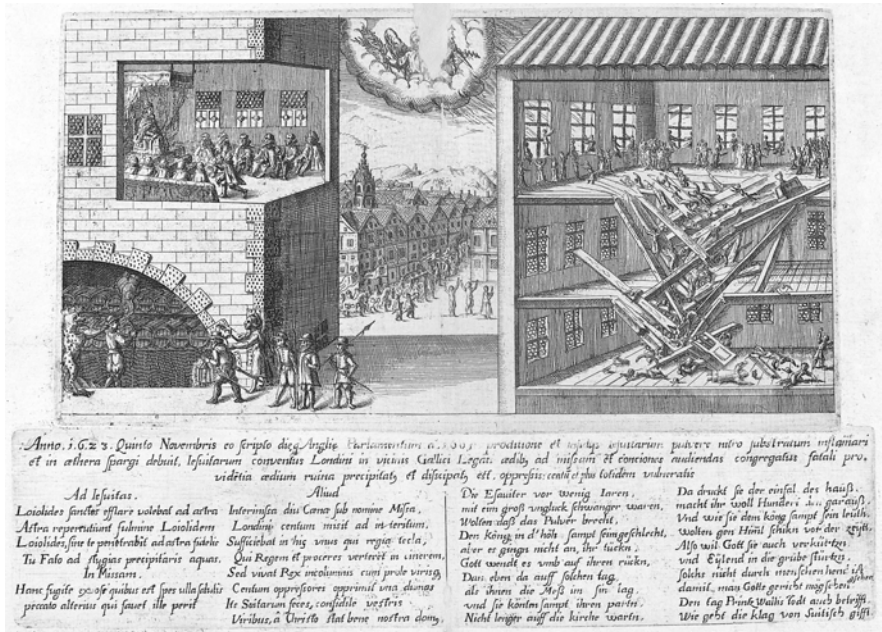 Anno. 1.6.2.3. Quinto Novembris eo scripto dieq Angliæ Parlamentum a. proditione et Iesuitarum pulvere nitro substratum inflamari
et in æthera spargi debuit, Iesuitarum conventus Londini in vicinis Gallici Legat. ædibq ad missam et conciones audiendas congregatus fatali pro,
videtia ædium ruina precipitatq et dißipatq est. oppreßis centū et plus totidem vulneratis
Ad Iesuitas.
Loiolides sanctos efflare volebat ad astra
Astra repentitiunt fulmine Loiolidem
Loiolides, sine te penetrabit ad astra fidelis
Tu Fato ad stygias precipitaris aquas.
In Missam.
Hanc fugite exose quibus est spes ulla salutis
peccato alterius qui favet ille perit
Aliud
Interimista diu Cænæ sub nomine Misæ,
Londini centum misit ad interitum.
Sufficiebat in his unus qui regia tecta,
Qui Regem et proceres verteret in cinerem,
Sed vivat Rex incolumis cum prole virisq,
Centum oppressores opprimit una domus
Ite Suitarum feces, confidite vestris
Viribus, a Christo stat bene nostra domq.
Die Esauiter vor wenig Iaren,
mit ein groß vngluck schwanger waren,
Wolten daß das Pulver brecht,
Den König in d'höh, sampt seim geschlecht,
aber es gingn nicht an, ihr tückn,
Gott wendt es vmb auf ihren rückn,
Dan eben da auff solchen tag,
als ihnen die Meß im sin lag,
vnd sie köntn sampt ihren partn,
Nicht lenger auff die kirche wartn.
Da druckt sie der einfal des hauß,
macht ihr woll Hundert den garauß,
Vnd wie sie dem köng sampt sein leuth,
Wolten gen Himl schikn vor der zeitt,
Also wil Gott sie auch verkürtzn,
vnd Eylend in die grube stürtzn,
Solchs nicht durch menschen hend ist gschen
damit, man Gotts gericht mög
Den tag Printz Wallis Todt auch betrifft.
Wie geht die klag von Suitisch gifft